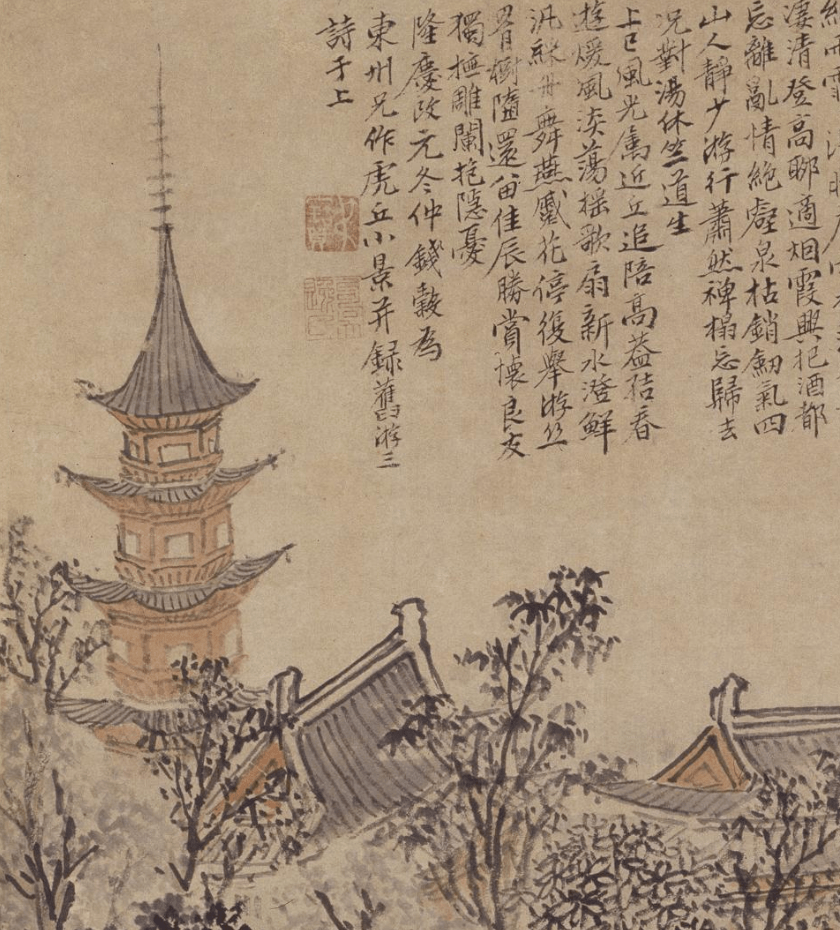 凄清登高聊適烟霞興把酒都
忘離亂情絶壑泉枯銷劒氣四
山人靜少游行蕭然禅榻忘歸去
况對湯休竺道生
上巳風光屬近丘追陪高葢結春
遊煖風淡蕩揺歌扇新水澄鮮
汎舞燕戲花停復舉游絲
胃樹隨還留佳辰勝賞懷良友
獨撫雕闌抱隱憂
隆慶改元冬仲錢榖為
東州兄作虎丘小景并録舊游三
詩于上